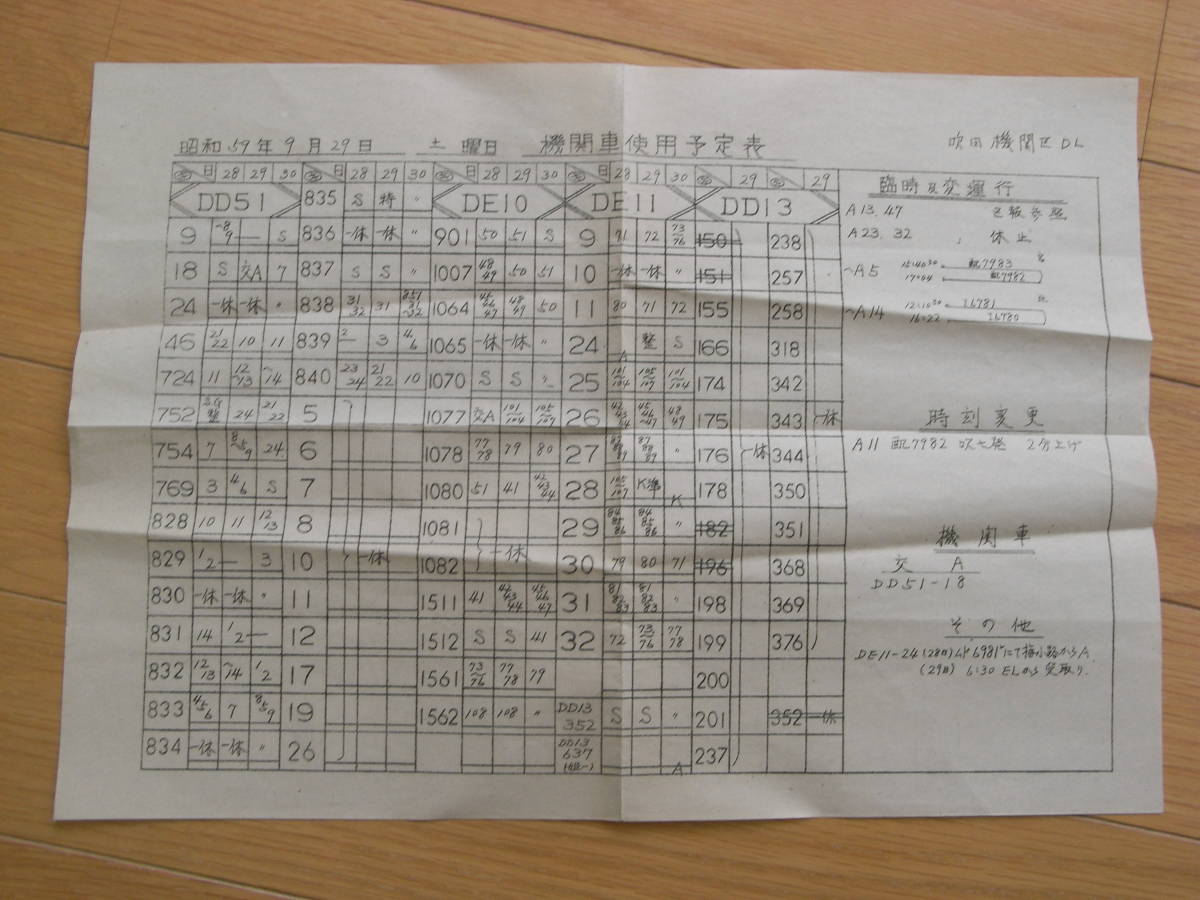 昭和59年9月29日 土曜日 機関車使用予定表 吹田機関区DL
日 28 29 30 日 28 29 30 日 28 29 30 日 28 29 30 29 29
DD51 835 S 特 〃 DE10 DE11 DD13
9 S 836 一休 一休 〃 901 50 51 S 9 71 72 73/76 150 238
18 S 交A 7 837 S S 〃 1007 48/49 50 51 10 一休 一休 〃 151 257
24 一休 一休 〃 838 31/32 31 1064 50 11 80 71 72 155 258
46 21/22 10 11 839 3 4/6 1065 一休 一休 〃 24 整 S 166 318
724 11 12/13 14 840 23/24 21/22 10 1070 S S 25 101/104 105/107 101/104 174 342
752 24 21/22 5 1077 交A 101/104 105/107 26 175 343 一休
754 7 24 6 1078 77/78 79 80 27 〃 176 一休 344
769 3 4/6 S 7 1080 51 41 42/43/44 28 105/107 K準 K 178 350
828 10 11 12/13 8 1081 29 84/85/86 84/85/86 〃 182 351
829 1/2 3 10 一休 1082 一休 30 79 80 71 196 368
830 一休 一休 〃 11 1511 41 42/43/44 45/46/47 31 81/82/83 81/82/83 〃 198 369
831 14 1/2 12 1512 S S 41 32 72 73/76 77/78 199 376
832 12/13 14 1/2 17 1561 73/76 77/78 79 200
833 7 19 1562 108 108 〃 DD13 352 S S 〃 201 352 一休
834 一休 一休 〃 26 DD13 637 A 237
臨時及変運行
A13.47
A23.32 〃 休止
~A5 配7983
17:04 配7982
~A14 16781
16:22 16780
時刻変更
A11 配7982 2分上げ
機関車
交 A
DD51-18
その他
DE11-24(28日) にて梅小路からA
(29日) 6:30 ELから受取り